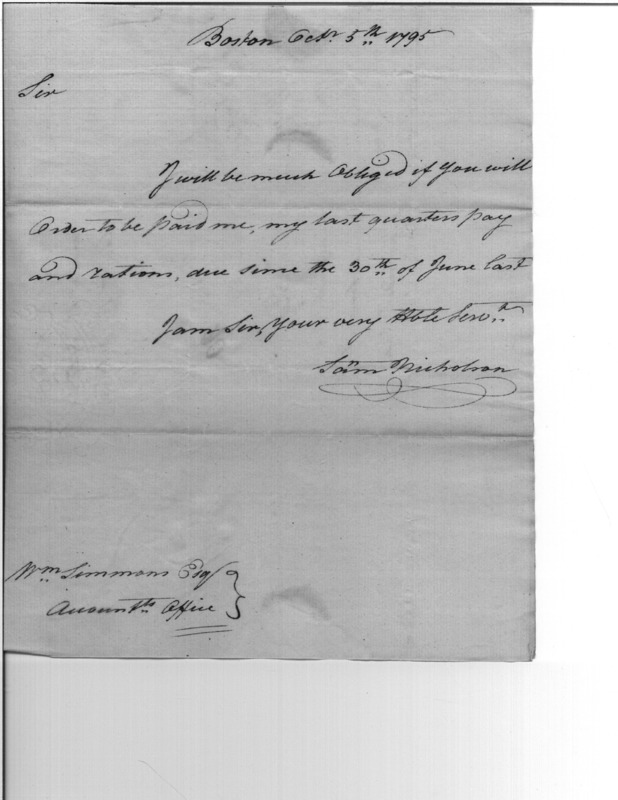 Boston Octr. 5th 1795
Sir
I will be much Obliged if you will
Order to be paid me, my last quarters pay
and rations, due since the 30th of June last
I am Sir, Your very Hble Servt.
Saml Nicholson
Wm Simmons Esqr
Accountts Office